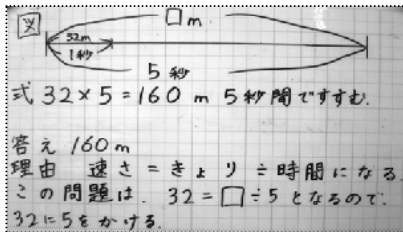 図
□m
32m
1秒
5秒
式 32×5=160 m 5秒間ですすむ.
答え 160m
理由 速さ=きょり÷時間になる
この問題は. 32=□÷5となるので.
32に5をかける.